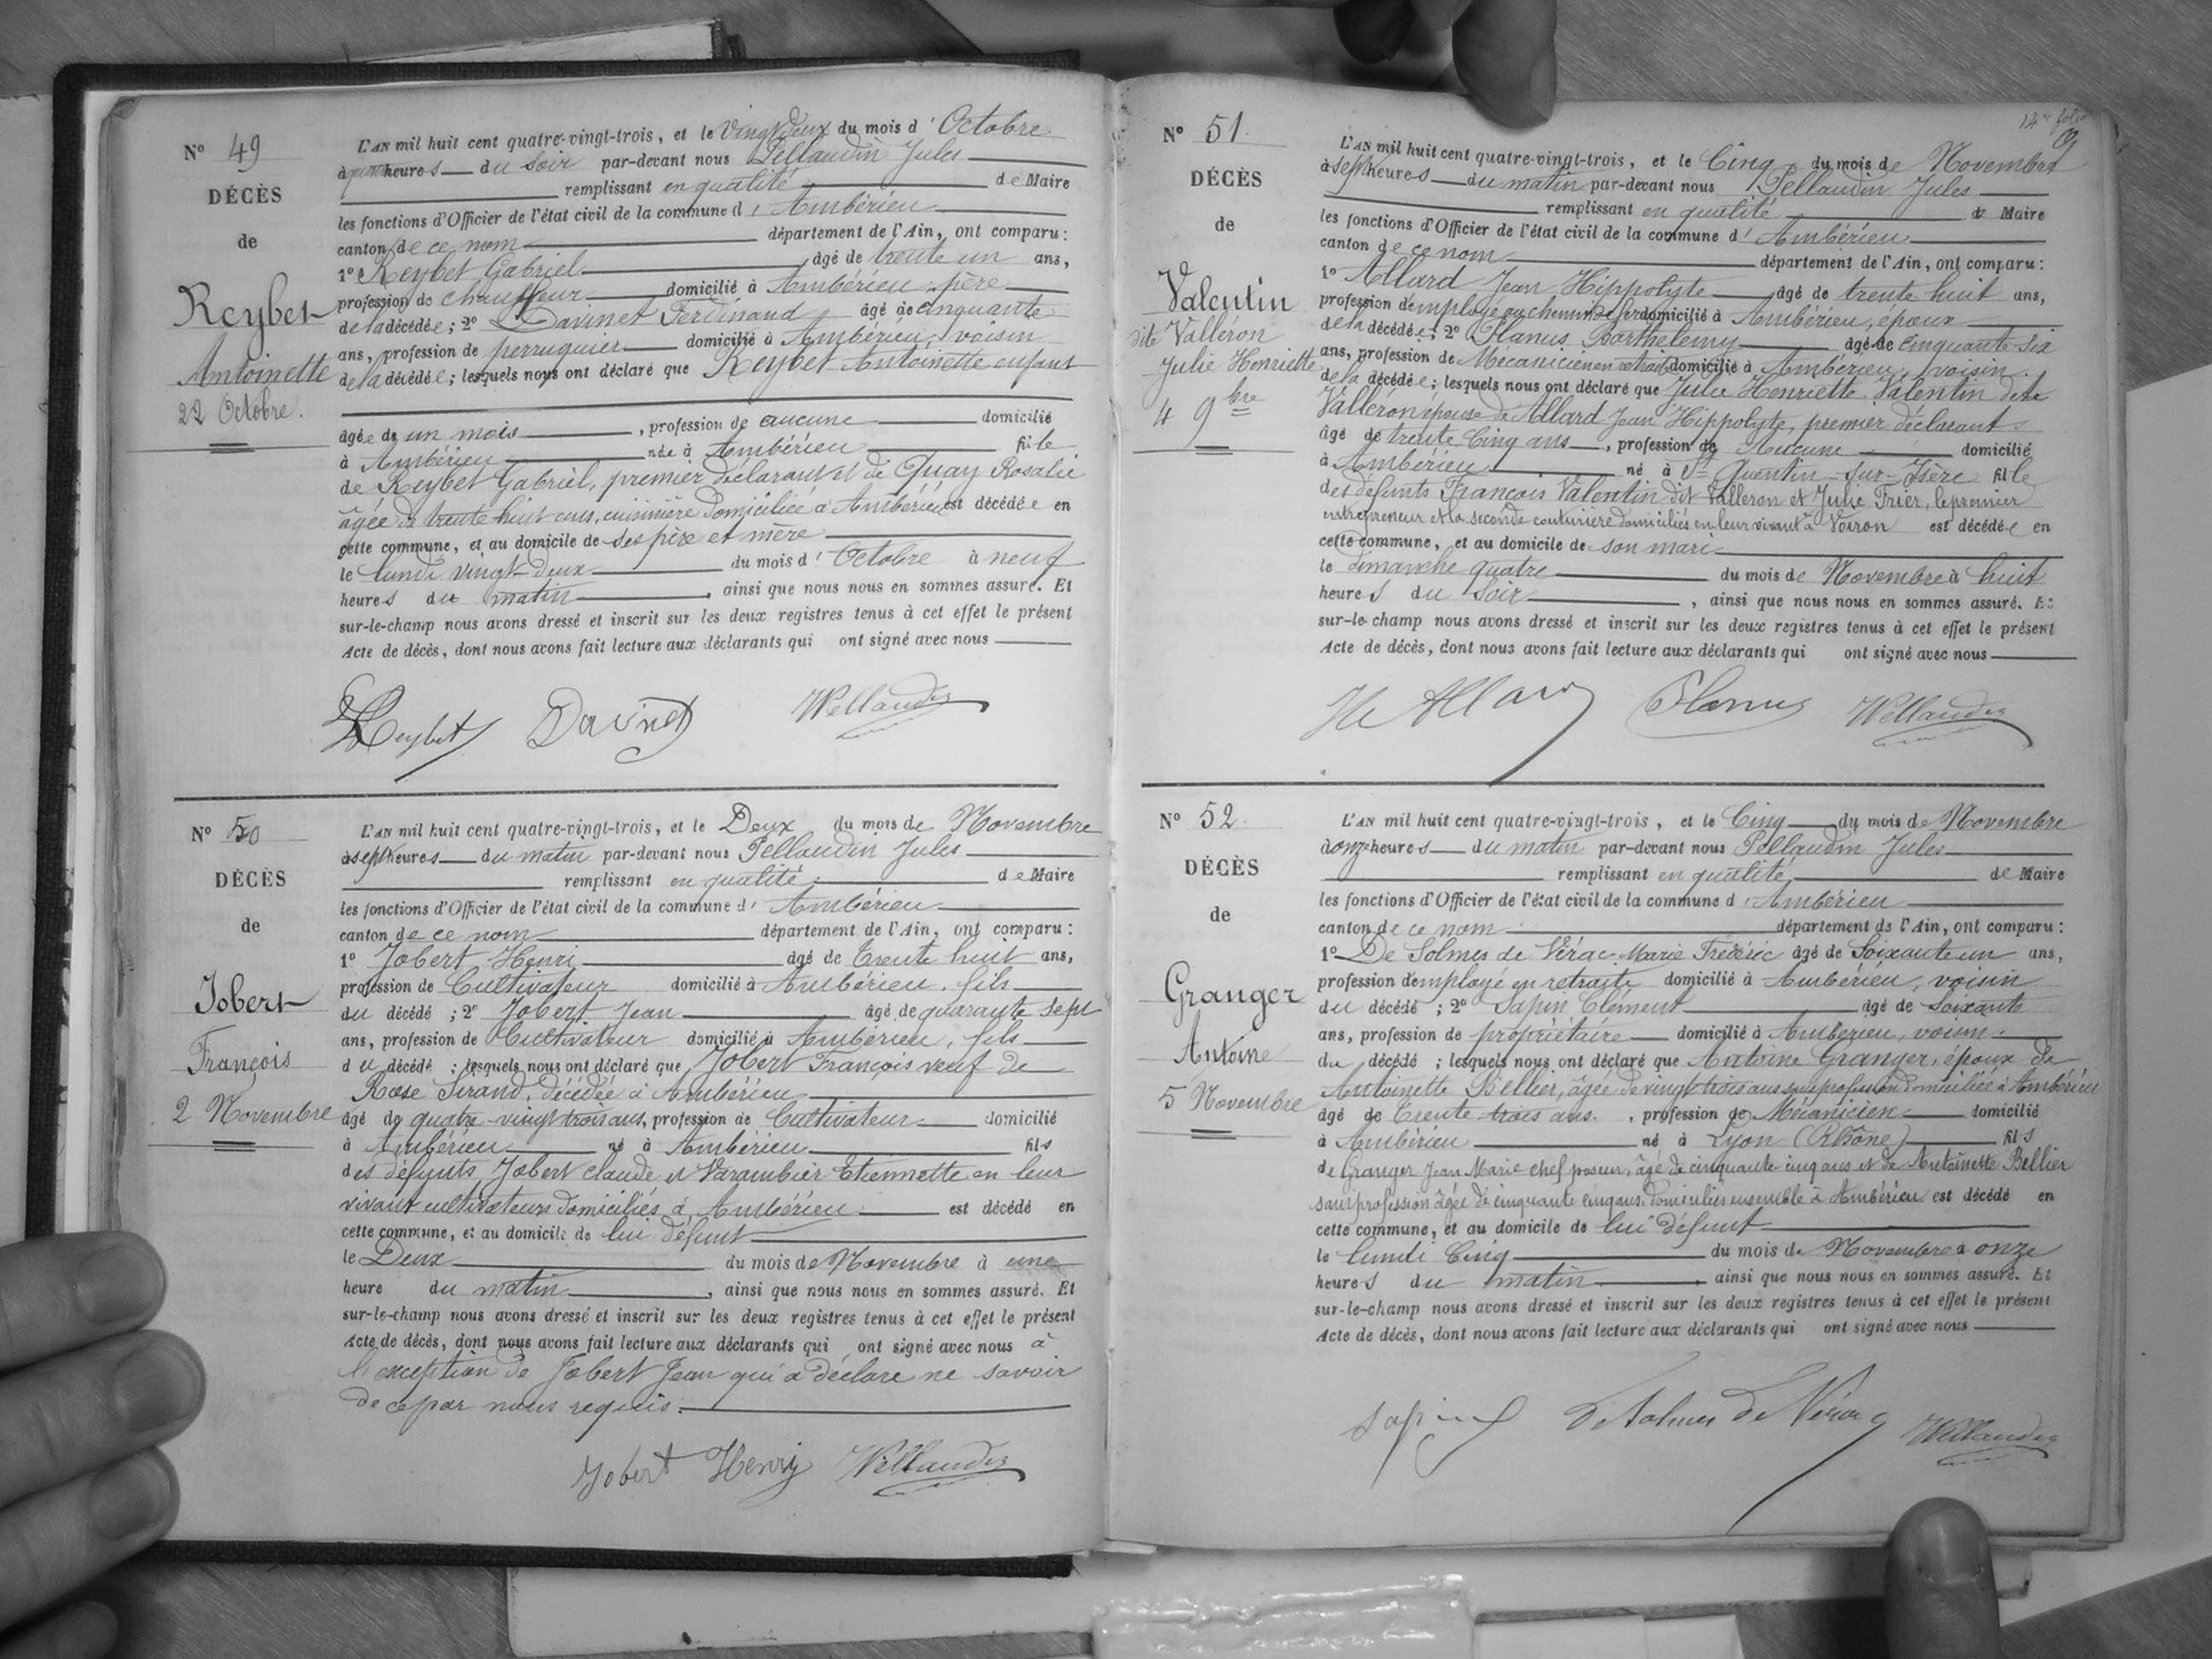 Nº 49
DÉCÈS
de
Reybet
Antoinette
22 Octobre.
L'AN mil huit cent quatre-vingt-trois, et le Vingt deux du mois d'Octobre
à heures du soir par-devant nous Pellaudin Jules
remplissant en qualité de Maire
les fonctions d'Officier de l'état civil de la commune d'Ambérieu
canton de ce nom département de l'Ain, ont comparu :
1º Reybet Gabriel âgé de trente un ans,
profession de chauffeur domicilié à Ambérieu, père
de la décédée ; 2º Davinet Ferdinand âgé de cinquante
ans, profession de perruquier domicilié à Ambérieu, voisin
de la décédée ; lesquels nous ont déclaré que Reybet Antoinette enfant
âgée de un mois, profession de aucune domicilié
à Ambérieu née à Ambérieu fille
de Reybet Gabriel, premier déclarant et de Quay Rosalie
âgée de trente huit ans, cuisinière domiciliée à Ambérieu est décédée en
cette commune, et au domicile de ses père et mère
le lundi vingt-deux du mois d'Octobre à neuf
heures du matin, ainsi que nous nous en sommes assuré. Et
sur-le-champ nous avons dressé et inscrit sur les deux registres tenus à cet effet le présent
Acte de décès, dont nous avons fait lecture aux déclarants qui ont signé avec nous
Reybet Davinet Pellaudin
Nº 50
DÉCÈS
de
Jobert
François
2 Novembre
L'AN mil huit cent quatre-vingt-trois, et le Deux du mois de Novembre
à sept heures du matin par-devant nous Pellaudin Jules
remplissant en qualité de Maire
les fonctions d'Officier de l'état civil de la commune d'Ambérieu
canton de ce nom département de l'Ain, ont comparu :
1º Jobert Henri âgé de trente huit ans,
profession de Cultivateur domicilié à Ambérieu, fils
du décédé ; 2º Jobert Jean âgé de quarante sept
ans, profession de Cultivateur domicilié à Ambérieu, fils
du décédé ; lesquels nous ont déclaré que Jobert François veuf de
Rose Sirand, décédée à Ambérieu
âgé de quatre-vingt trois ans, profession de Cultivateur domicilié
à Ambérieu né à Ambérieu fils
des défunts Jobert Claude et Varambier Etiennette en leur
vivant cultivateurs domiciliés à Ambérieu est décédé en
cette commune, et au domicile de lui défunt
le Deux du mois de Novembre à une
heure du matin, ainsi que nous nous en sommes assuré. Et
sur-le-champ nous avons dressé et inscrit sur les deux registres tenus à cet effet le présent
Acte de décès, dont nous avons fait lecture aux déclarants qui ont signé avec nous à
l'exception de Jobert Jean qui a déclaré ne savoir
de ce par nous requis.
Jobert Henry Pellaudin
14e folio
Nº 51
DÉCÈS
de
Valentin
dite Valléron
Julie Henriette
4 9bre
L'AN mil huit cent quatre-vingt-trois, et le Cinq du mois de Novembre
à sept heures du matin par-devant nous Pellaudin Jules
remplissant en qualité de Maire
les fonctions d'Officier de l'état civil de la commune d'Ambérieu
canton de ce nom département de l'Ain, ont comparu :
1º Allard Jean Hippolyte âgé de trente huit ans,
profession d'employé au chemin de fer domicilié à Ambérieu, époux
de la décédée ; 2º Planus Barthélemy âgé de cinquante-six
ans, profession de Mécanicien en retraite domicilié à Ambérieu, voisin.
de la décédée ; lesquels nous ont déclaré que Julie Henriette Valentin dite
Valléron épouse de Allard Jean Hippolyte, premier déclarant
âgé de trente Cinq ans, profession de Aucune domicilié
à Ambérieu né à St Quentin-sur-Isère fille
des défunts François Valentin dit Valleron et Julie Frier, le premier
entrepreneur et la seconde couturière domiciliés en leur vivant à Voiron est décédée en
cette commune, et au domicile de son mari
le dimanche quatre du mois de Novembre à huit
heures du soir, ainsi que nous nous en sommes assuré. Et
sur-le-champ nous avons dressé et inscrit sur les deux registres tenus à cet effet le présent
Acte de décès, dont nous avons fait lecture aux déclarants qui ont signé avec nous
Allard Planus Pellaudin
Nº 52
DÉCÈS
de
Granger
Antoine
5 Novembre
L'AN mil huit cent quatre-vingt-trois, et le Cinq du mois de Novembre
à onze heures du matin par-devant nous Pellaudin Jules
remplissant en qualité de Maire
les fonctions d'Officier de l'état civil de la commune d'Ambérieu
canton de ce nom département de l'Ain, ont comparu :
1º De Solmes de Vérac Marie Frédéric âgé de Soixante un ans,
profession d'employé en retraite domicilié à Ambérieu, voisin
du décédé ; 2º Sapin Clément âgé de soixante
ans, profession de propriétaire domicilié à Ambérieu, voisin.
du décédé ; lesquels nous ont déclaré que Antoine Granger, époux de
Antoinette Bellier, âgée de vingt trois ans sans profession domiciliée à Ambérieu
âgé de trente trois ans., profession de Mécanicien domicilié
à Ambérieu né à Lyon (Rhône) fils
de Granger Jean Marie chef poseur, âgé de cinquante cinq ans et de Antoinette Bellier
sans profession âgée de cinquante cinq ans, domiciliés ensemble à Ambérieu est décédé en
cette commune, et au domicile de lui défunt
le lundi Cinq du mois de Novembre à onze
heures du matin, ainsi que nous nous en sommes assuré. Et
sur-le-champ nous avons dressé et inscrit sur les deux registres tenus à cet effet le présent
Acte de décès, dont nous avons fait lecture aux déclarants qui ont signé avec nous
Sapin De Solmes de Vérac Pellaudin